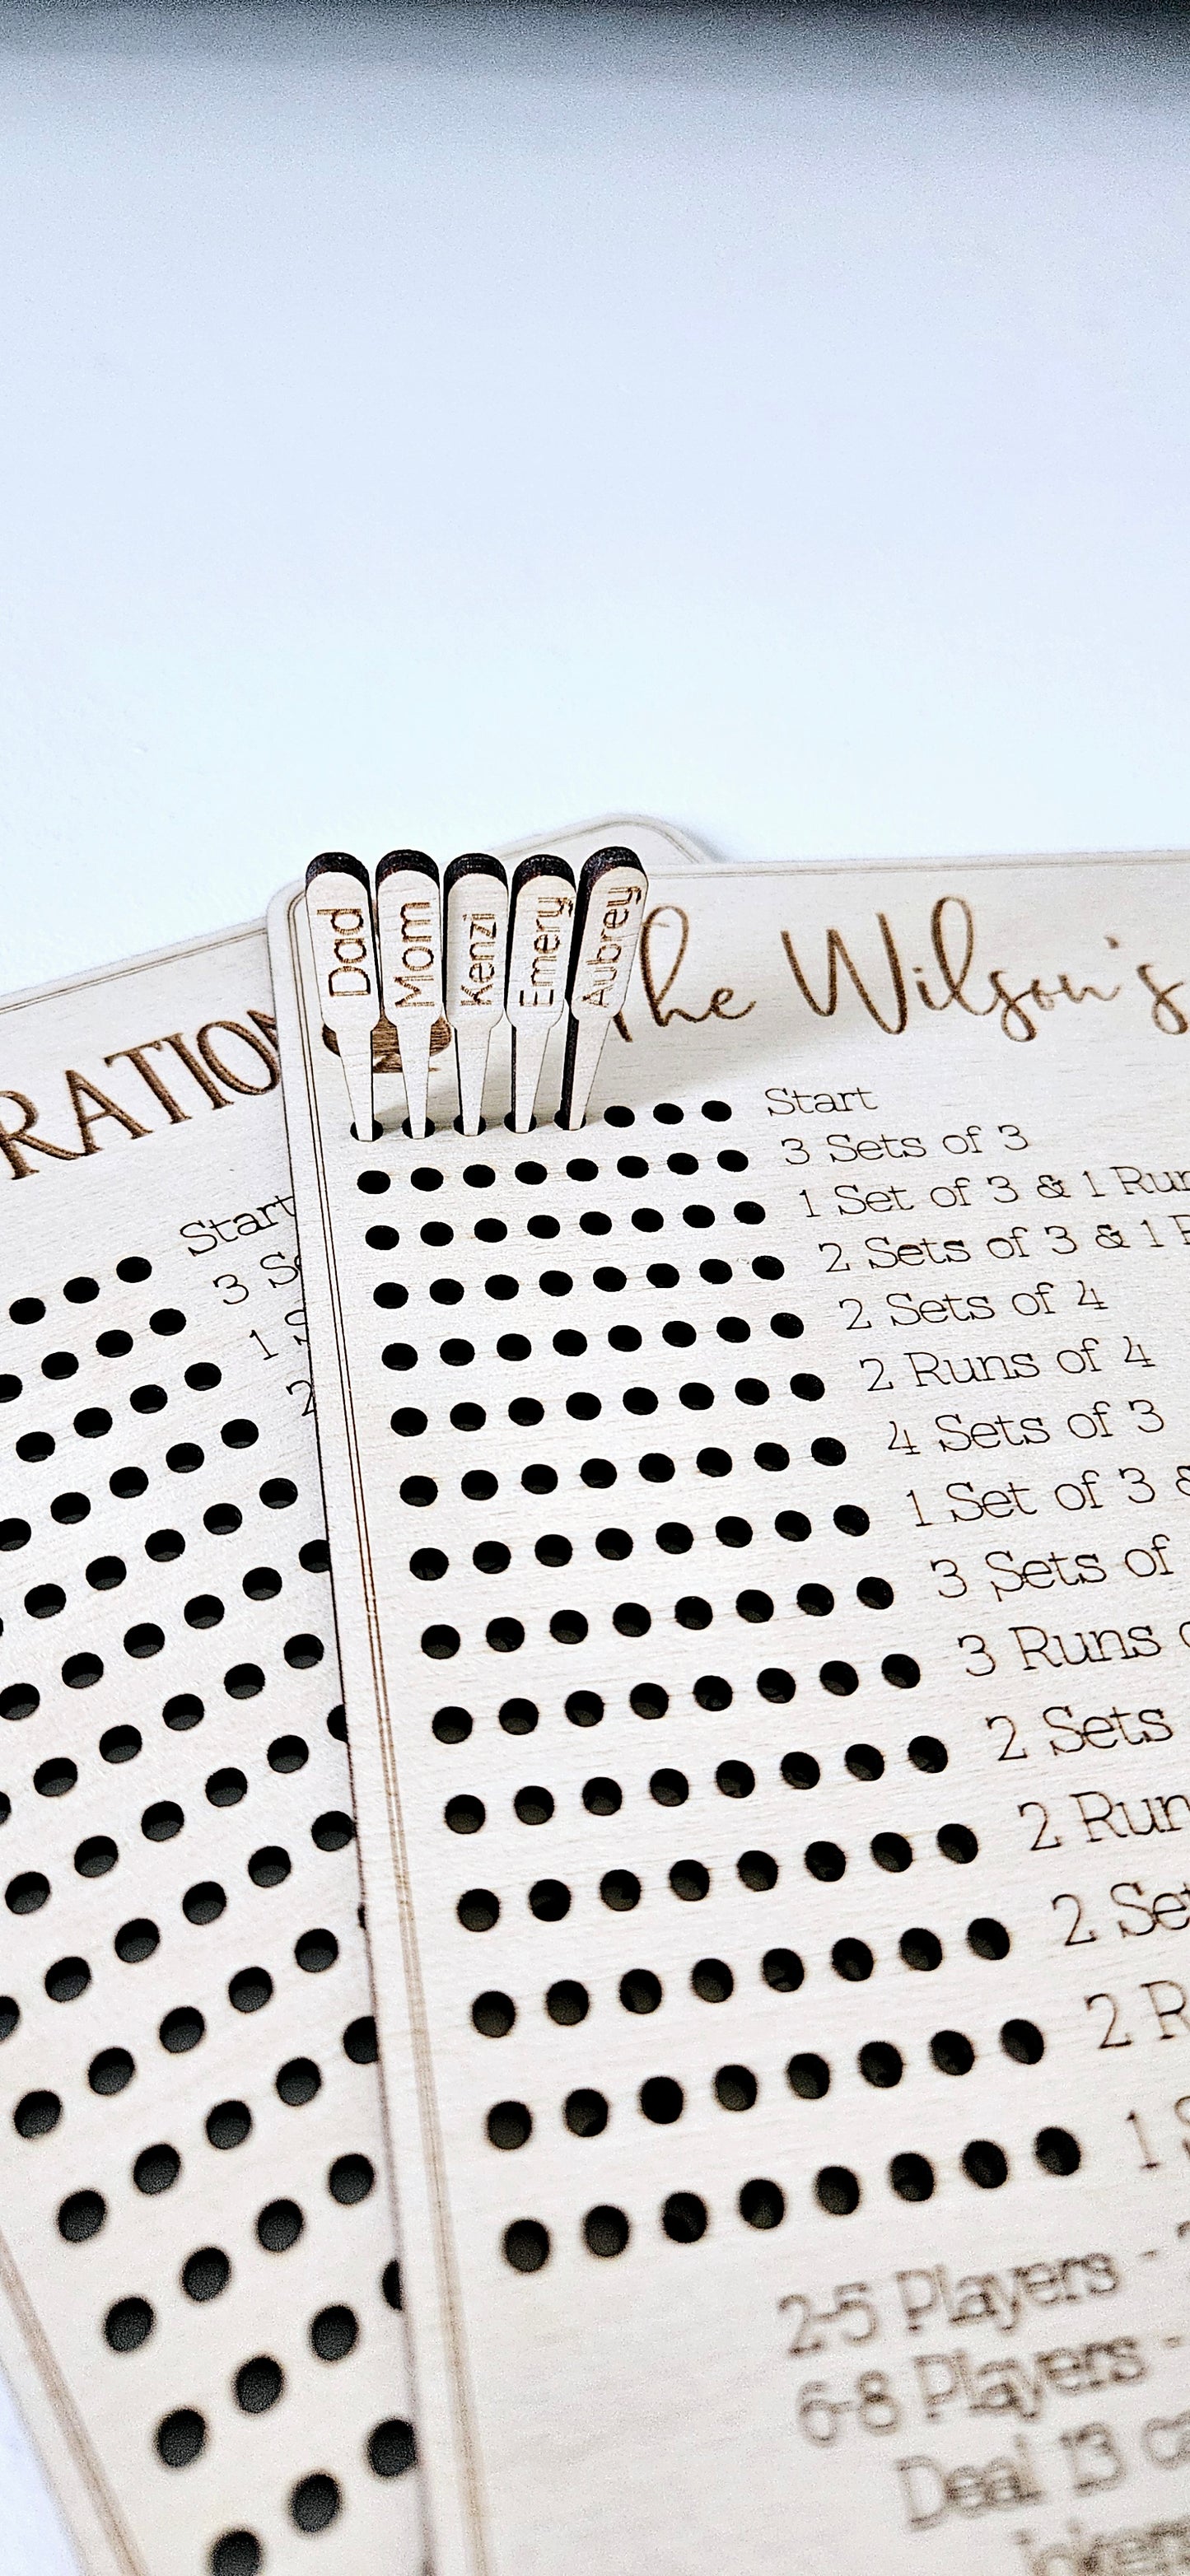 Dad
Mom
Kenzi
Emery
Aubrey
The Wilson's
Start
3 Sets of 3
1 Set of 3 & 1 Run
2 Sets of 3 & 1
2 Sets of 4
2 Runs of 4
4 Sets of 3
1 Set of 3 &
3 Sets of
3 Runs
2 Sets
2 Run
2 Set
2 R
1 S
2-5 Players -
6-8 Players -
Deal 13 ca
jokers
RATION
Start
3 Se
1 S
2